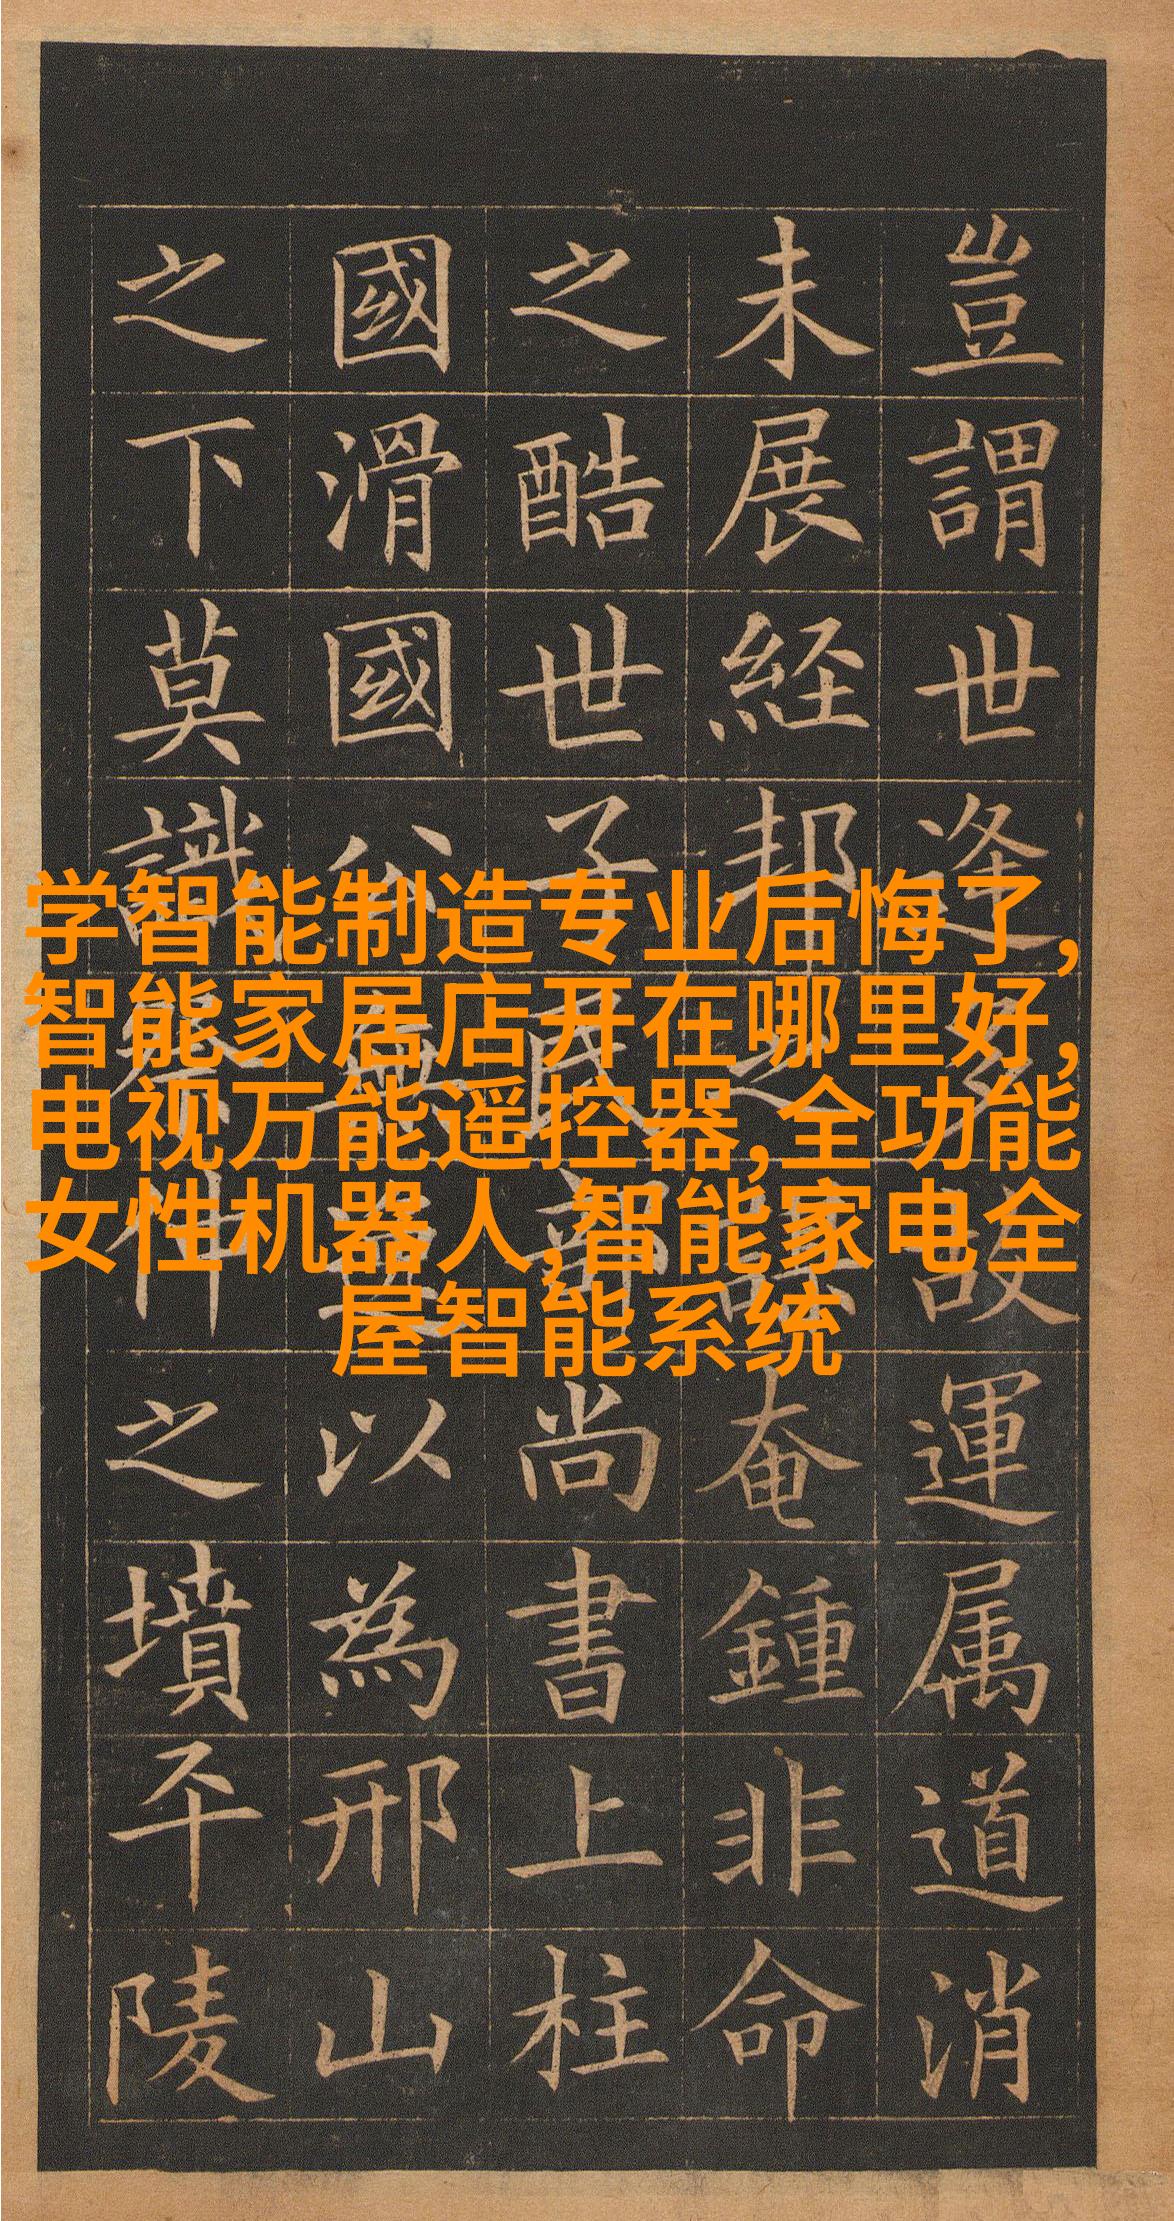 豈謂世逢多故運属道消
未展經邦之謀奄鍾非命
之酷世子民部尚書上柱
國滑國公無逸以為邢山
之下莫識祭仲之墳平陵
学智能制造专业后悔了,
智能家居店开在哪里好,
电视万能遥控器,全功能
女性机器人,智能家电全
屋智能系统